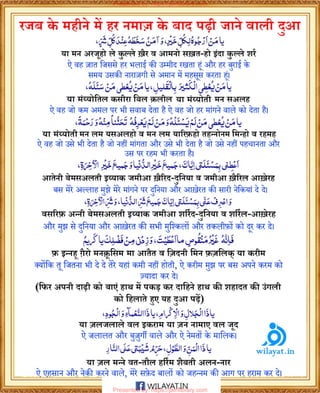 रजब के महीने में हर नमाज़ के बाद पढ़ी जाने वाली दुआ
يَا مَنْ أَرْجُوهُ لِكُلِّ خَيْرٍ، وَ آمَنُ سَخَطَهُ عِنْدَ كُلِّ شَرٍّ،
या मन अरजूहो ले कुल्ले ख़ैर व आमनो सख़त-हो इंदा कुल्ले शर्र
ऐ वह ज़ात जिससे हर भलाई की उम्मीद रखता हूं और हर बुराई के
समय उसकी नाराज़गी से अमान में महसूस करता हूं।
يَا مَنْ يُعْطِي الْكَثِيرَ بِالْقَلِيلِ، يَا مَنْ يُعْطِي مَنْ سَأَلَهُ،
या मंय्योतिल कसीरा बिल क़लील या मंय्योती मन सअलह
ऐ वह जो कम अमल पर भी सवाब देता है ऐ वह जो हर मांगने वाले को देता है।
يَا مَنْ يُعْطِي مَنْ لَمْ يَسْأَلْهُ وَ مَنْ لَمْ يَعْرِفْهُ تَحَنُّناً مِنْهُ وَ رَحْمَةً،
या मंय्योती मन लम यसअलहो व मन लम यारिफ़हो तहन्नोनम मिनहो व रहमह
ऐ वह जो उसे भी देता है जो नहीं मांगता और उसे भी देता है जो उसे नहीं पहचानता और
उस पर रहम भी करता है।
أَعْطِنِي بِمَسْأَلَتِي إِيَّاكَ جَمِيعَ خَيْرِ الدُّنْيَا وَ جَمِيعَ خَيْرِ الْآخِرَةِ،
आतेनी बेमसअलती इय्याक जमीआ ख़ैरिद-दुनिया व जमीआ ख़ैरिल आख़ेरह
बस मेरे अल्लाह मुझे मेरे मांगने पर दुनिया और आख़ेरत की सारी नेकियां दे दे।
وَ اصْرِفْ عَنِّي بِمَسْأَلَتِي إِيَّاكَ جَمِيعَ شَرِّ الدُّنْيَا وَ شَرِّ الْآخِرَةِ،
वसरिफ़ अन्नी बेमसअलती इय्याक जमीआ शर्रिद-दुनिया व शर्रिल-आख़ेरह
और मुझ से दुनिया और आख़ेरत की सभी मुश्किलों और तकलीफ़ों को दूर कर दे।
فَإِنَّهُ غَيْرُ مَنْقُوصٍ مَا أَعْطَيْتَ، وَ زِدْنِي مِنْ فَضْلِكَ يَا كَرِيمُ
फ़ इन्नहू ग़ैरो मनक़ूसिम मा आतैत व ज़िदनी मिन फ़ज़लिक या करीम
क्योंकि तू जितना भी दे दे तेरे यहां कमी नहीं होती, ऐ करीम मुझ पर बस अपने करम को
ज़्यादा कर दे।
(फिर अपनी दाढ़ी को बाएं हाथ में पकड़ कर दाहिने हाथ की शहादत की उंगली
को हिलाते हुए यह दुआ पढ़ें)
يَا ذَا الْجَلَالِ وَ الْإِكْرَامِ، يَا ذَا النَّعْمَاءِ وَ الْجُودِ،
या ज़लजलाले वल इकराम या ज़न नामाए वल जूद
ऐ जलालत और बुज़ुर्गी वाले और ऐ नेमतों के मालिक।
يَا ذَا الْمَنِّ وَ الطَّوْلِ، حَرِّمْ شَيْبَتِي عَلَى النَّارِ
या ज़ल मन्ने वत-तौल हर्रिम शैबती अलन-नार
ऐ एहसान और नेकी करने वाले, मेरे सफ़ेद बालों को जहन्नम की आग पर हराम कर दे।
wilayat.in
WILAYAT.IN